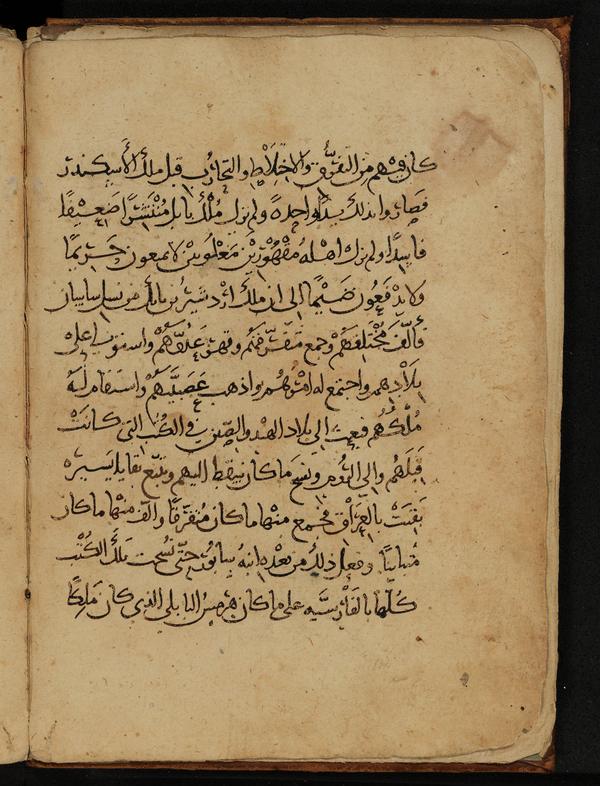 كان فيهم من التفرّق والاختلاط والتحارب قبل ملك الاسكندر
فصاروا بذلك يدًا واحدةً ولم يزل ملك بابل منتشرًا ضعيفًا
فاسدًا ولم يزل اهله مقهورين مغلوبين لا يمنعون حريمًا
ولا يدفعون ضيمًا الى ان ملك اردشير بن بابك من نسل ساسان
فألّف مختلفهم وجمع متفرقهم وقهر عدوّهم واستولى على
بلادهم واجتمع له امرهم واذهب عصبيّتهم واستقام له
ملكهم فبعث الى بلاد الهند والصين في الكتب التي كانت
قبلهم والى الروم ونسخ ما كان سقط اليهم وتتبع بقايا يسيرة
بقيت بالعراق فجمع منها ما كان متفرقًا والّف منها ما كان
متباينًا وفعل ذلك من بعده ابنه سابور حتّى نسخت تلك الكتب
كلها بالفارسيّه على ما كان هرمس البابلي الذي كان ملكًا